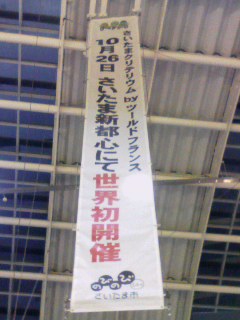 さいたまクリテリウム byツールドフランス
10月26日 さいたま新都心にて世界初開催
のびのび
さいたま市